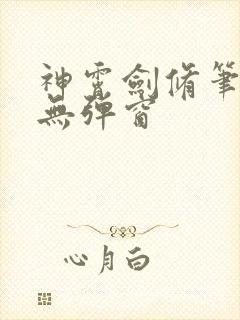 神霄劍脩筆
無彈窗
心月白